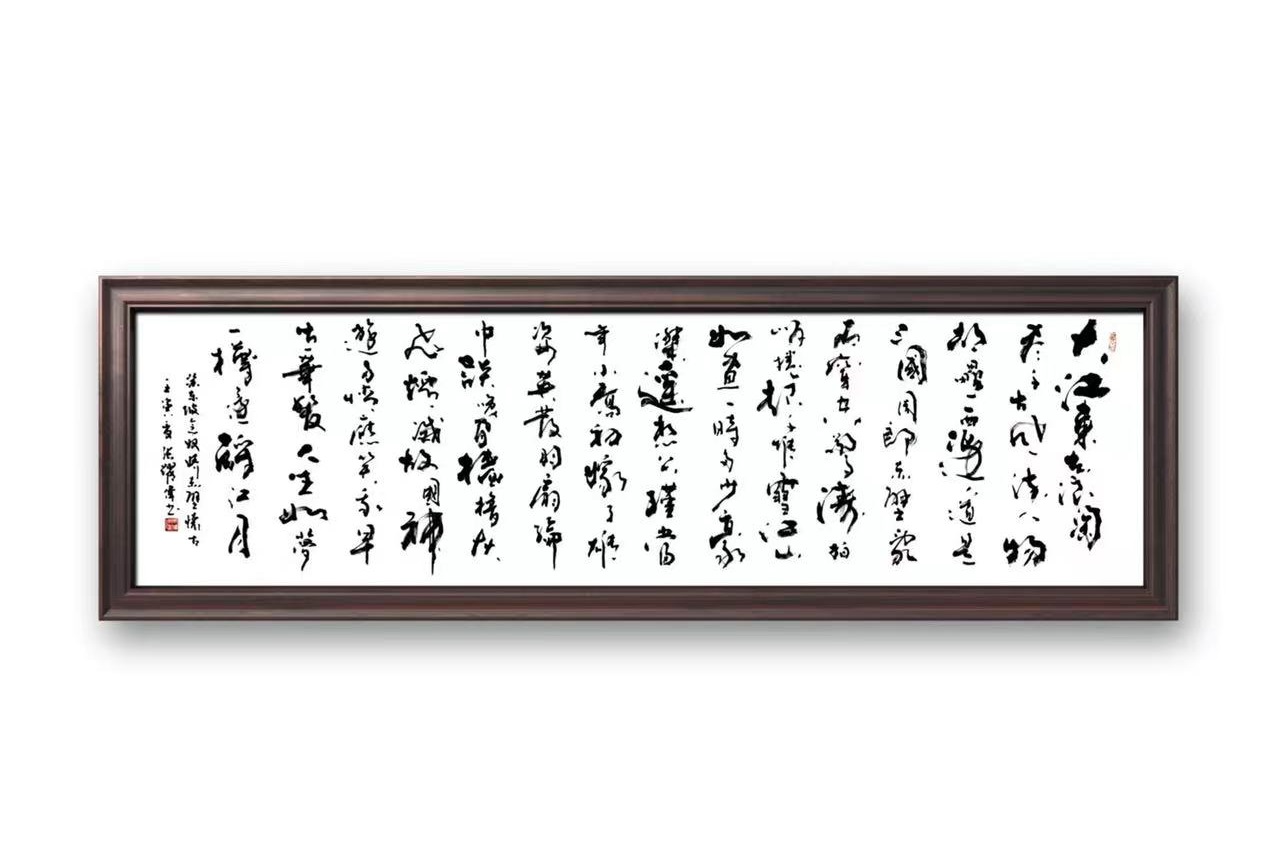 大江東去浪淘
尽千古風流人物
故壘西邊人道是
三國周郎赤壁亂
石穿空驚濤拍
岸捲起千堆雪江山
如畫一時多少豪
傑遥想公瑾當
年小喬初嫁了雄
姿英發羽扇綸
巾談笑間檣櫓灰
飛煙滅故國神
遊多情應笑我早
生華髮人生如夢
一樽還酹江月
蘇東坡念奴嬌赤壁懷古
壬寅夏